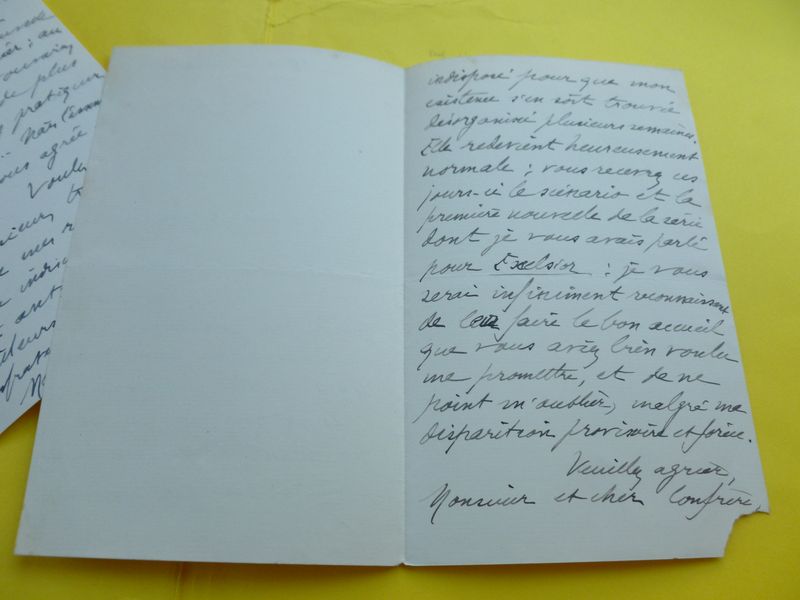 uvelle
ier; au
de plus
pratiquer
vous agrée
Voule
indispose pour que mon
existence s'en soit trouvée
désorganisée plusieurs semaines.
Elle redevient heureusement
normale; vous recevrez ces
jours-ci le scénario et la
première nouvelle de la série
dont je vous avais parlé
pour Excelsior: je vous
serai infiniment reconnaissant
de leur faire le bon accueil
que vous aviez bien voulu
me promettre, et de ne
point m'oublier, malgré ma
disparition provisoire et forcée.
Veuillez agréer,
Monsieur et cher Confrère,